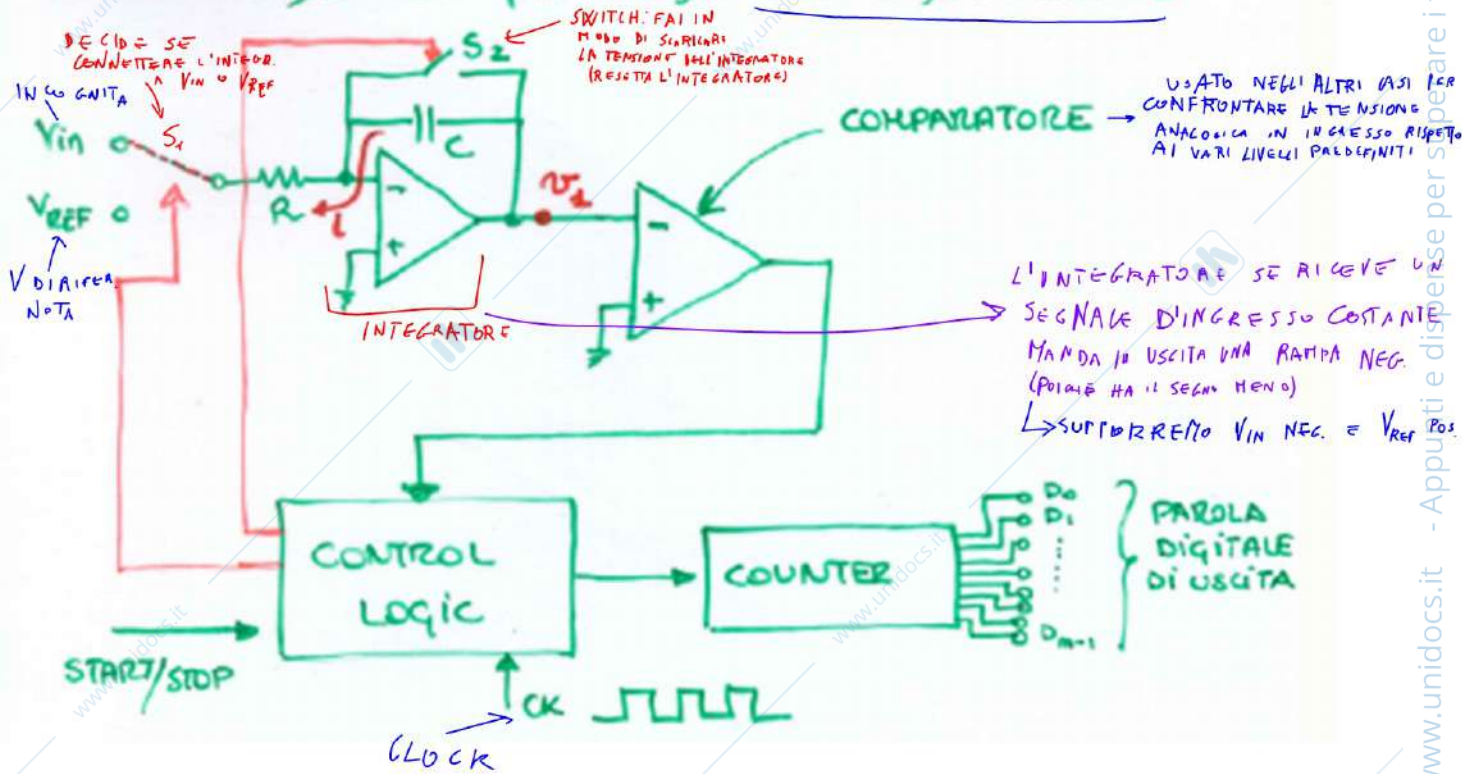 DECIDE SE
CONNETTERE L'INTEGR.
A VIN O VREF
INCOGNITA
Vin
S1
VREF
V DI RIFER.
NOTA
R
i
C
S2
SWITCH: FAI IN
MODO DI SCARICARE
LA TENSIONE DELL'INTEGRATORE
(RESETTA L'INTEGRATORE)
-
+
INTEGRATORE
v1
-
+
COMPARATORE → USATO NEGLI ALTRI CASI PER
CONFRONTARE LA TENSIONE
ANALOGICA IN INGRESSO RISPETTO
AI VARI LIVELLI PREDEFINITI
L'INTEGRATORE SE RICEVE UN
SEGNALE D'INGRESSO COSTANTE
MANDA IN USCITA UNA RAMPA NEG.
(POICHÈ HA IL SEGNO MENO)
SUPPORREMO VIN NEG. E VREF POS.
START/STOP
CONTROL
LOGIC
CK
CLOCK
COUNTER
D0
D1
Dm-1
PAROLA
DIGITALE
DI USCITA
www.unidocs.it - Appunti e dispense per superare i